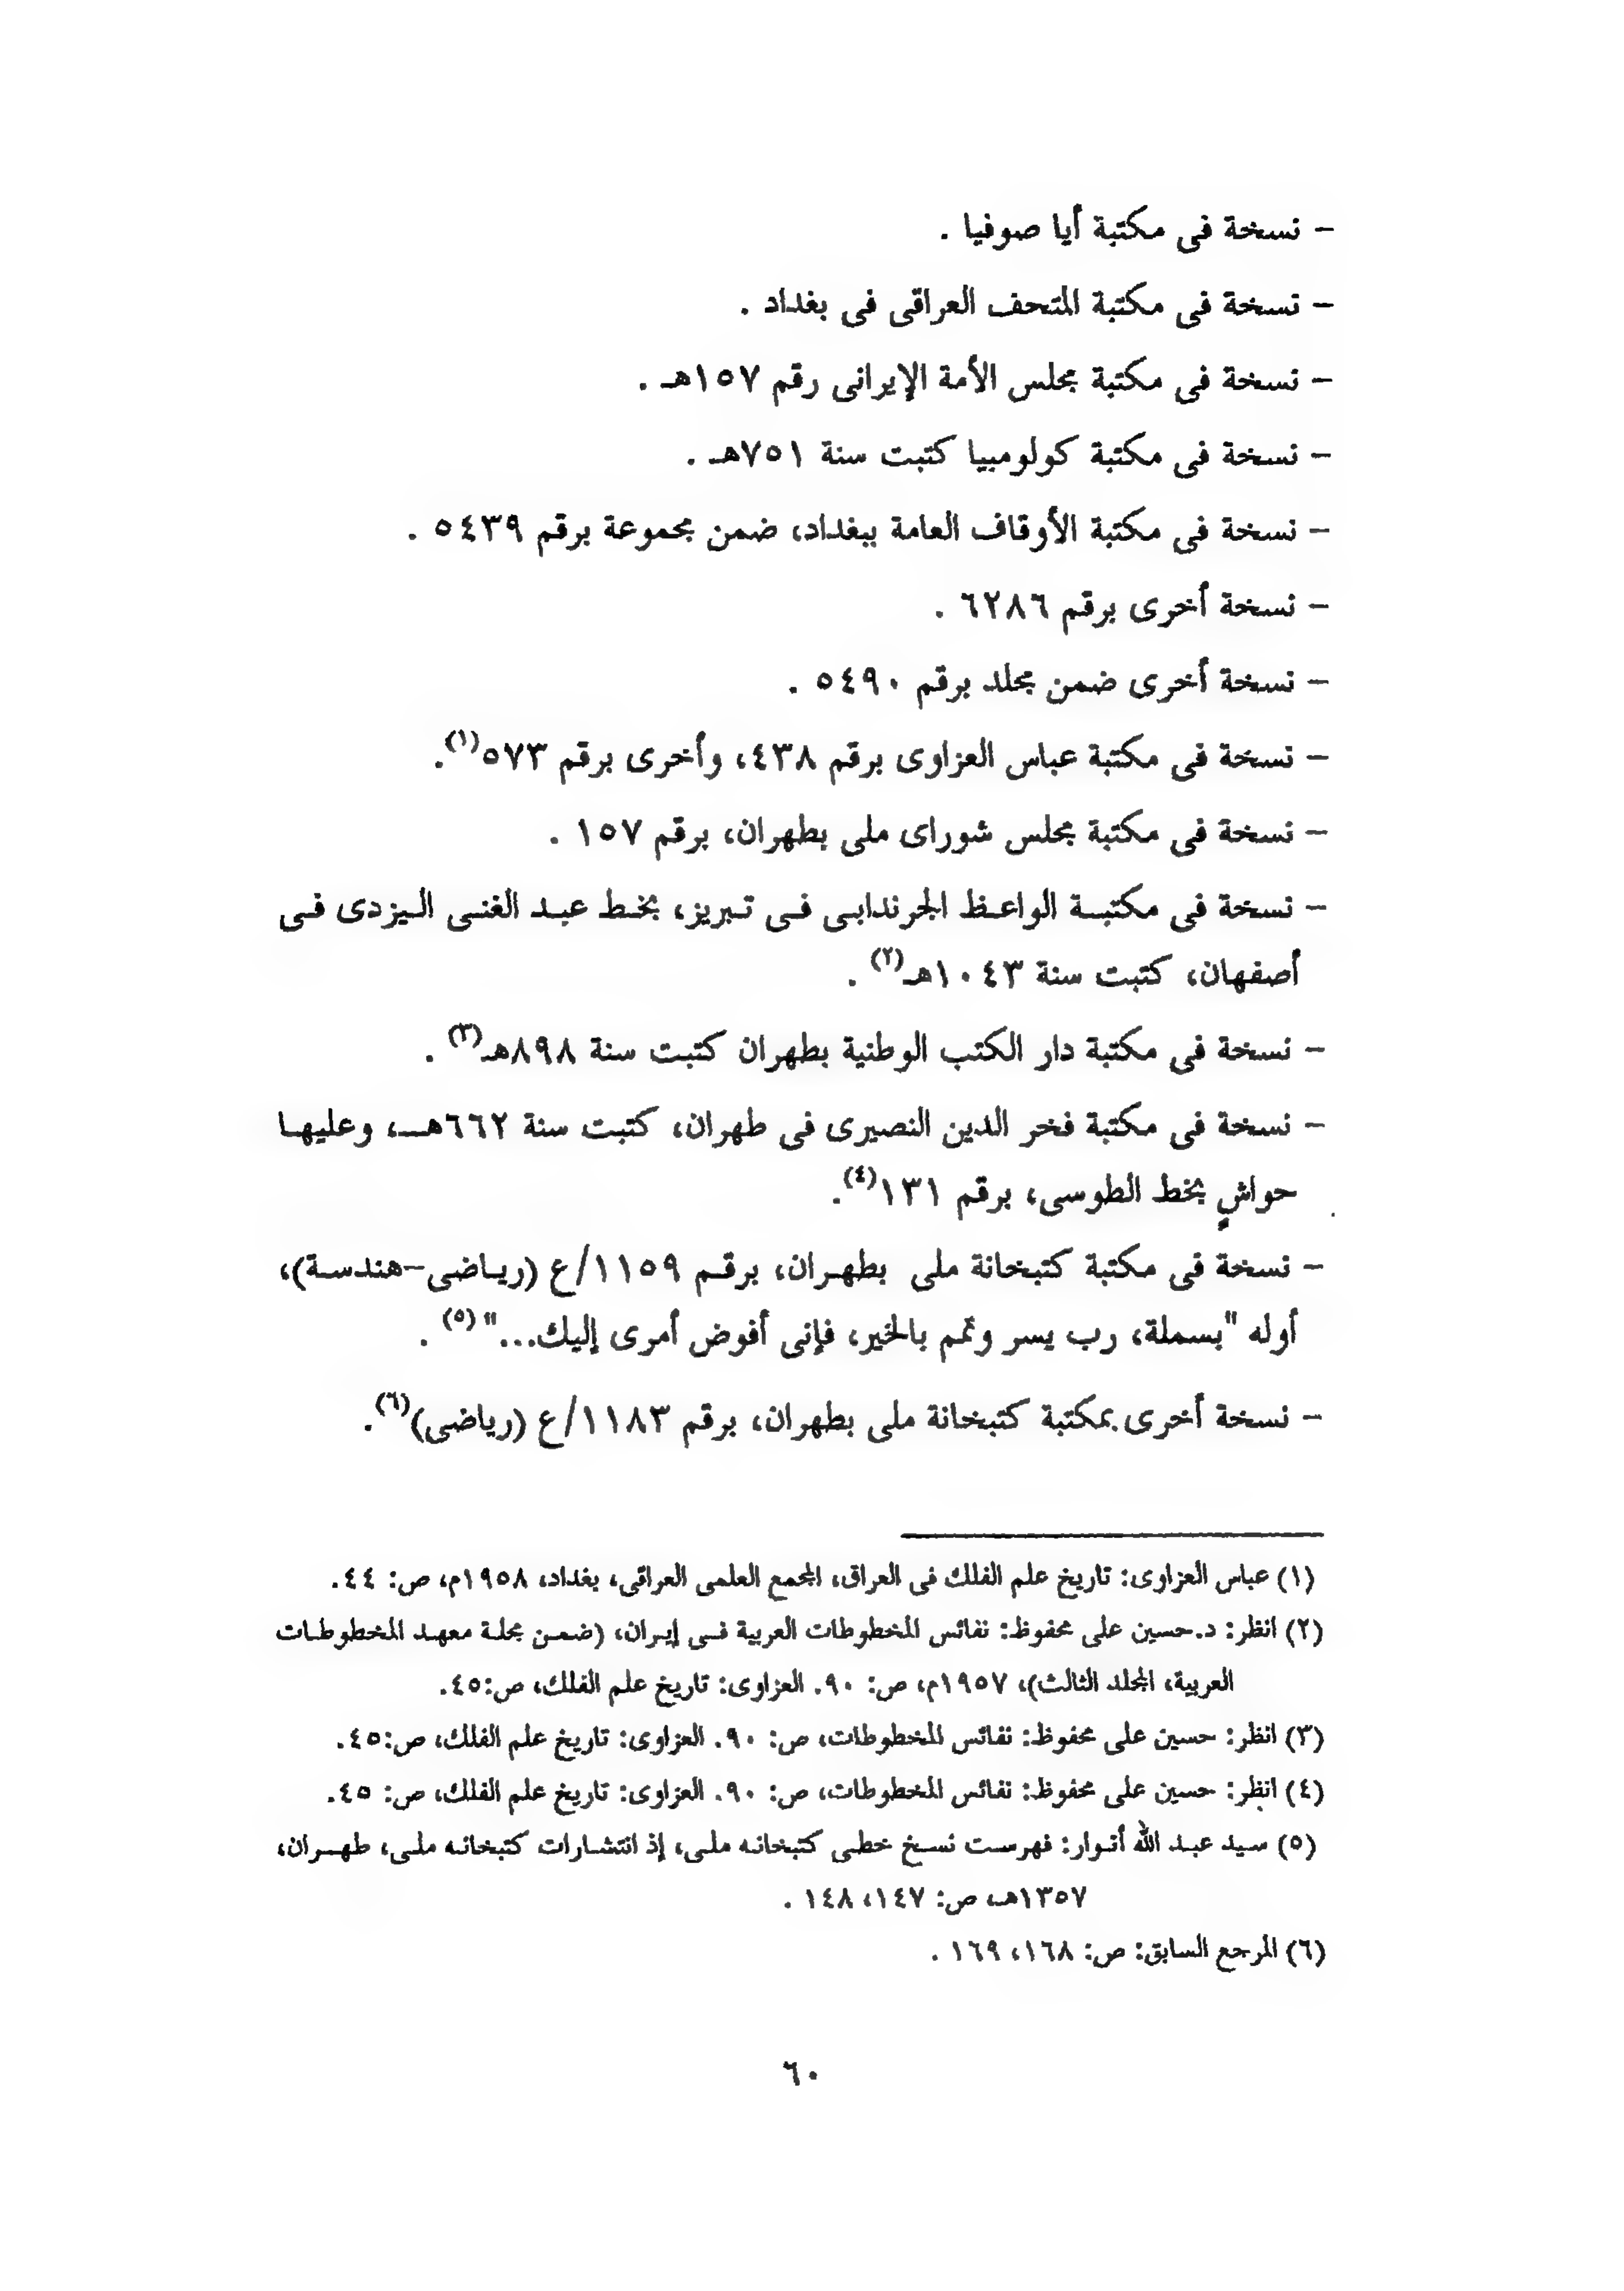 – نسخة فى مكتبة أيا صوفيا .
– نسخة فى مكتبة المتحف العراقى فى بغداد .
– نسخة فى مكتبة مجلس الأمة الإيرانى رقم ١٥٧هـ .
– نسخة فى مكتبة كولومبيا كتبت سنة ٧٥١هـ .
– نسخة فى مكتبة الأوقاف العامة ببغداد، ضمن مجموعة برقم ٥٤٣٩ .
– نسخة أخرى برقم ٦٢٨٦ .
– نسخة أخرى ضمن مجلد برقم ٥٤٩٠ .
– نسخة فى مكتبة عباس العزاوى برقم ٤٣٨، وأخرى برقم ٥٧٣(١).
– نسخة فى مكتبة مجلس شوراى ملى بطهران، برقم ١٥٧ .
– نسخة فى مكتبة الواعظ الجرندابى فى تبريز، بخط عبد الغنى اليزدى فى
أصفهان، كتبت سنة ١٠٤٣هـ(٢) .
– نسخة فى مكتبة دار الكتب الوطنية بطهران كتبت سنة ٨٩٨هـ(٣) .
– نسخة فى مكتبة فخر الدين النصيرى فى طهران، كتبت سنة ٦٦٢هـ، وعليها
حواشٍ بخط الطوسى، برقم ١٣١(٤).
– نسخة فى مكتبة كتبخانة ملى بطهران، برقم ١١٥٩/ع (رياضى–هندسة)،
أوله "بسملة، رب يسر وتمم بالخير، فإنى أفوض أمرى إليك..." (٥) .
– نسخة أخرى بمكتبة كتبخانة ملى بطهران، برقم ١١٨٣/ع (رياضى)(٦).
(١) عباس العزاوى: تاريخ علم الفلك فى العراق، المجمع العلمى العراقى، بغداد، ١٩٥٨م، ص: ٤٤.
(٢) انظر: د.حسين على محفوظ: نفائس المخطوطات العربية فى إيران، (ضمن مجلة معهد المخطوطات
العربية، المجلد الثالث)، ١٩٥٧م، ص: ٩٠. العزاوى: تاريخ علم الفلك، ص:٤٥.
(٣) انظر: حسين على محفوظ: نفائس المخطوطات، ص: ٩٠. العزاوى: تاريخ علم الفلك، ص:٤٥.
(٤) انظر: حسين على محفوظ: نفائس المخطوطات، ص: ٩٠. العزاوى: تاريخ علم الفلك، ص: ٤٥.
(٥) سيد عبد الله أنوار: فهرست نسخ خطى كتبخانه ملى، إذ انتشارات كتبخانه ملى، طهران،
١٣٥٧هـ، ص: ١٤٧، ١٤٨ .
(٦) المرجع السابق: ص: ١٦٨، ١٦٩ .
٦٠